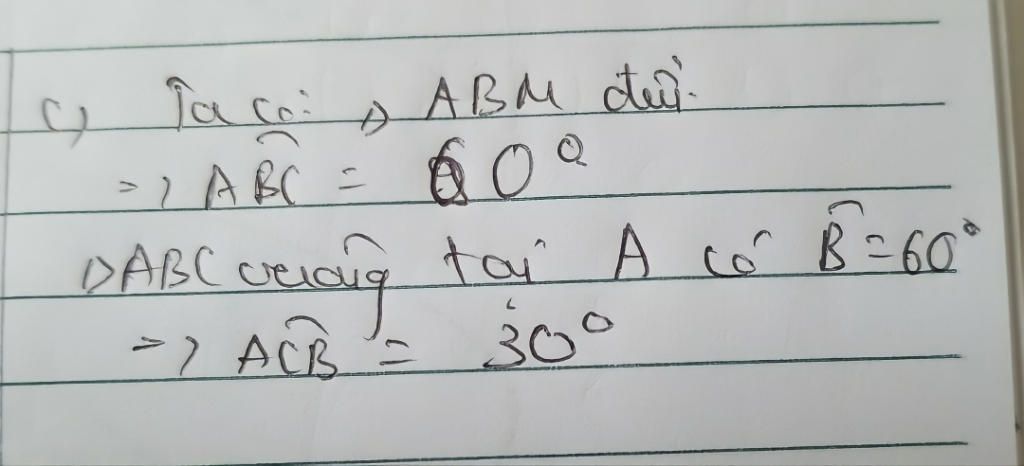 c) Ta có: Δ ABM đều.
=> \widehat{ABC} = 60°
ΔABC vuông tại A có \widehat{B} = 60°
=> \widehat{ACB} = 30°